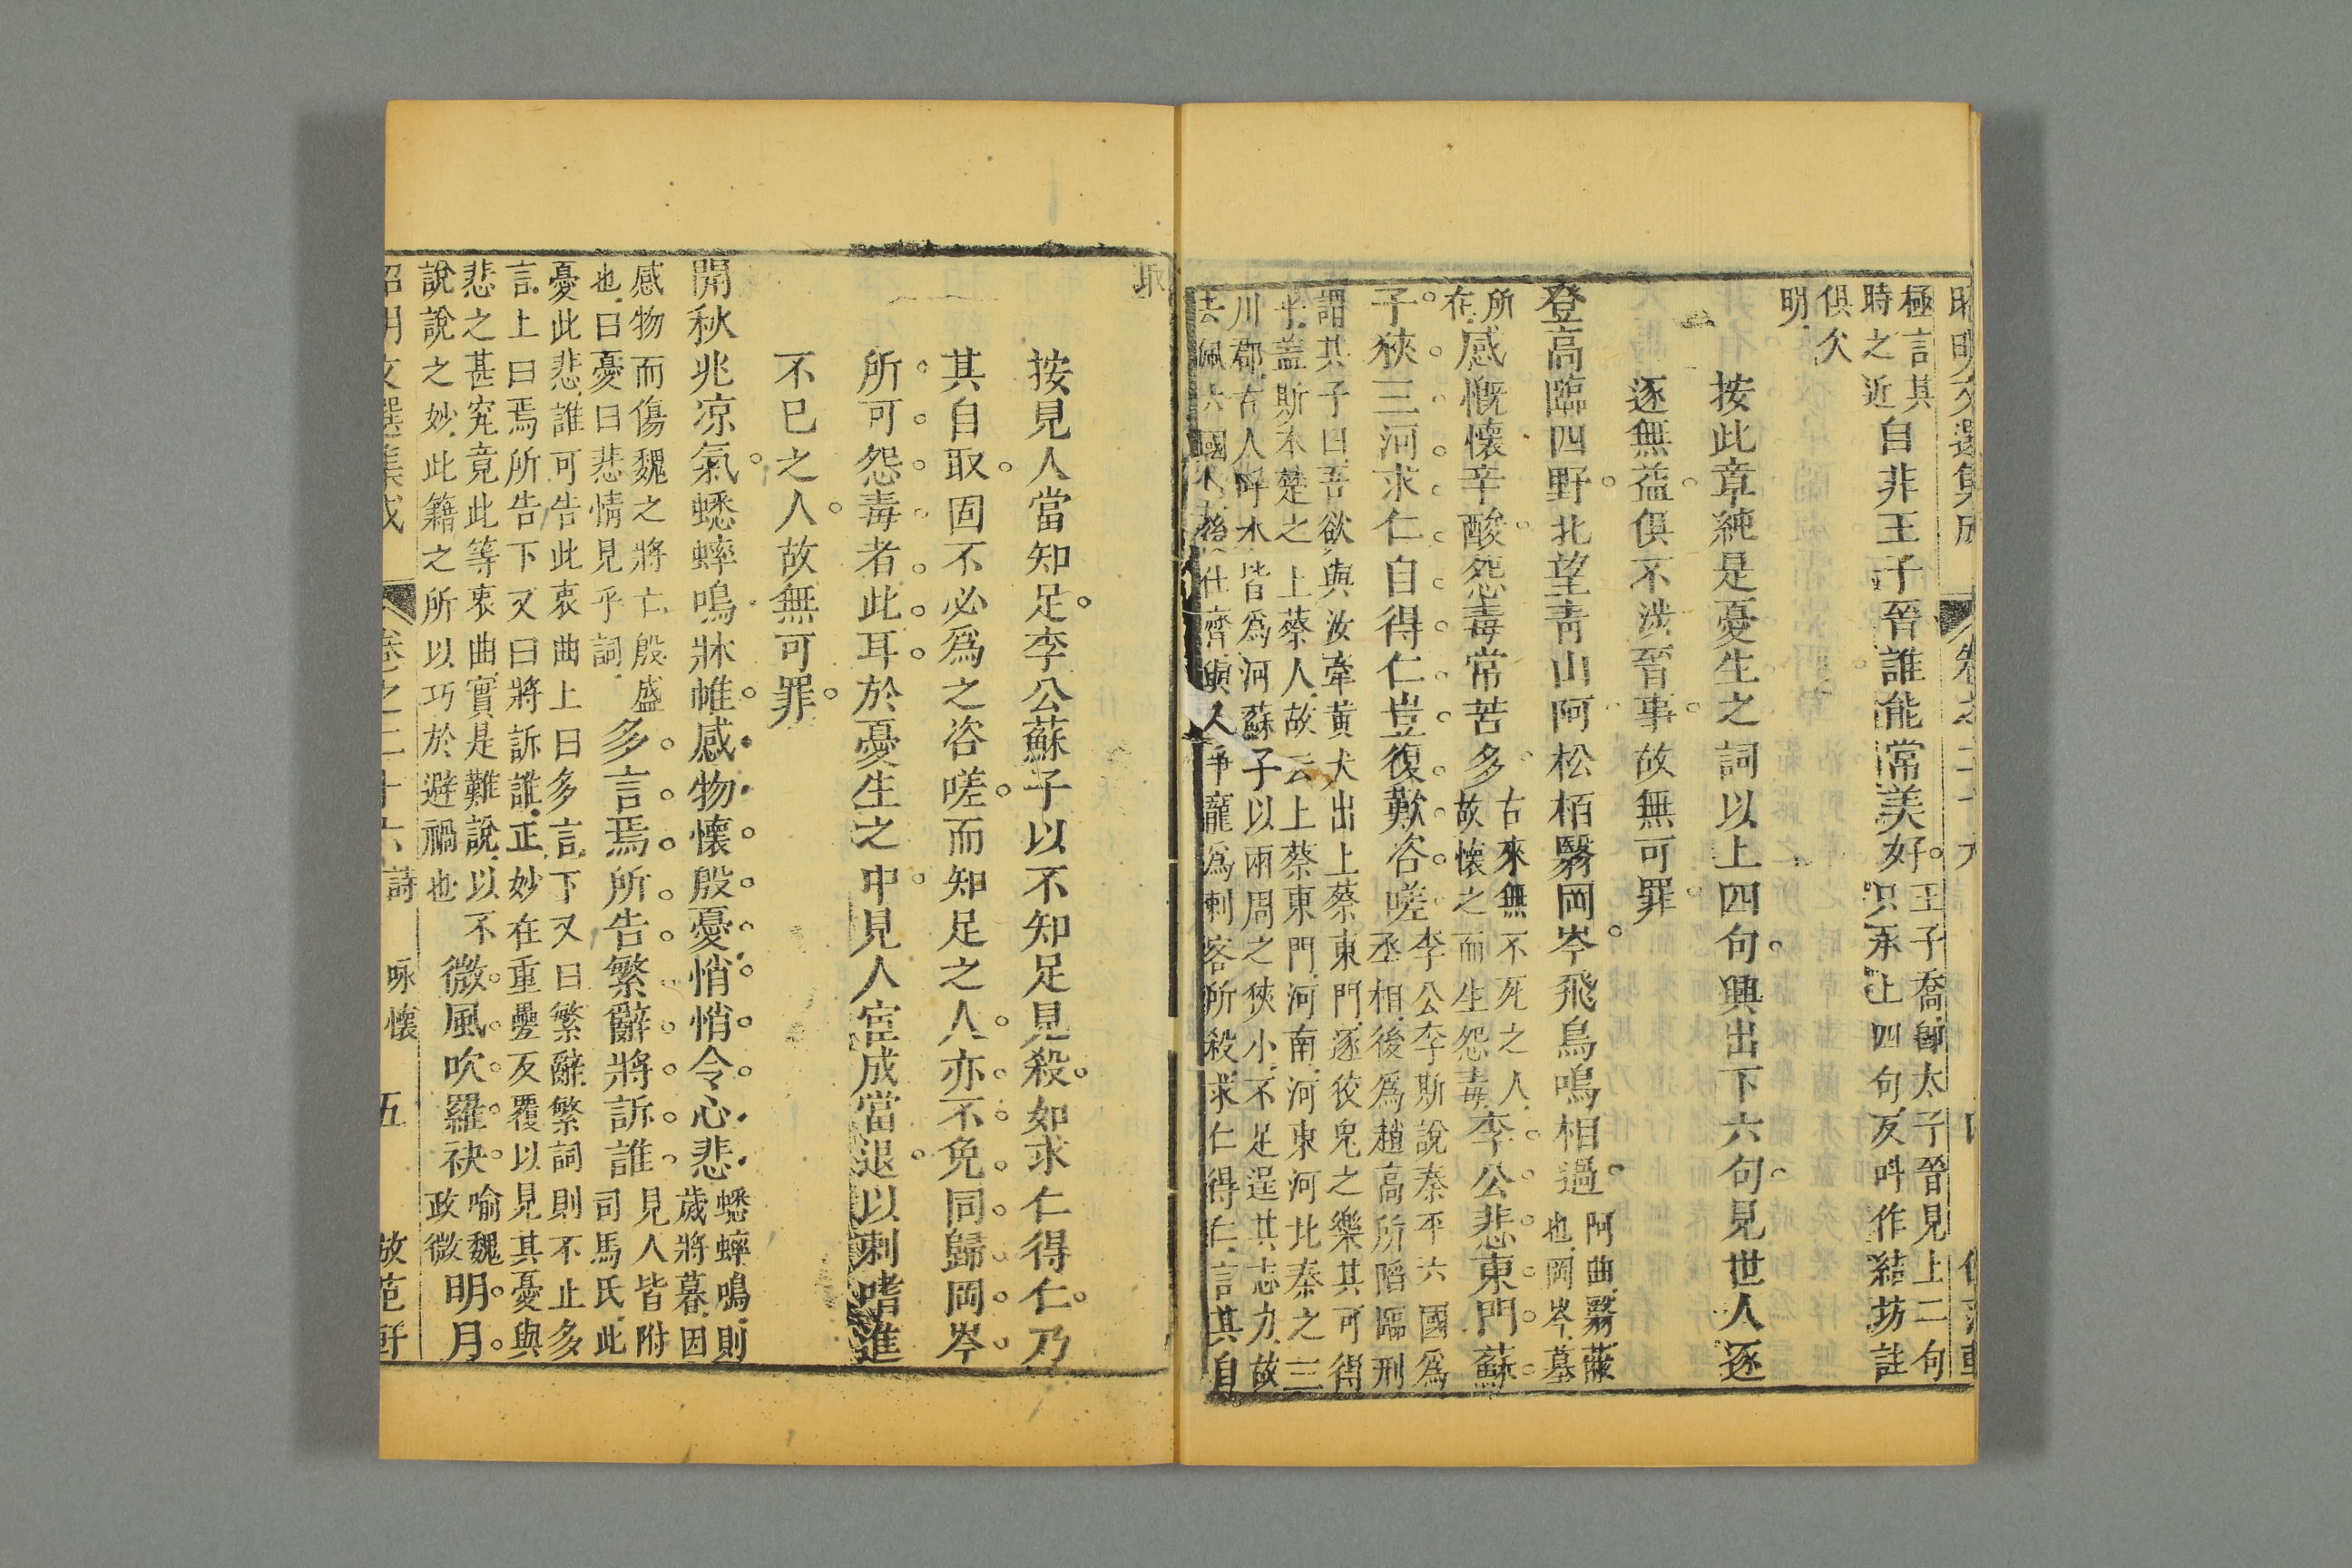 昭明文選集成 卷之二十六
極言其時之近自非王子晉誰能常美好王子喬卽太子晉見上二句只承上四句反呌作結坊註
俱欠明
按此章純是憂生之詞以上四句興出下六句見世人逐
逐無益俱不涉晉事故無可罪
登高臨四野北望靑山阿松栢翳岡岑飛鳥鳴相過阿曲翳蔽也岡岑墓
所在感慨懷辛酸怨毒常苦多古來無不死之人故懷之而生怨毒李公悲東門蘇
子狹三河求仁自得仁豈復歎咨嗟李公李斯說秦平六國爲丞相後爲趙高所陷臨刑
謂其子曰吾欲與汝牽黃犬出上蔡東門逐狡兔之樂其可得
乎蓋斯本楚之上蔡人故云上蔡東門河南河東河北秦之三
川郡古人呼水皆爲河蘇子以兩周之狹小不足逞其志力故
去佩六國相後仕齊與人爭寵爲刺客所殺求仁得仁言其自
取
按見人當知足李公蘇子以不知足見殺如求仁得仁乃
其自取固不必爲之咨嗟而知足之人亦不免同歸岡岑
所可怨毒者此耳於憂生之中見人宦成當退以刺嗜進
不已之人故無可罪
開秋兆凉氣蟋蟀鳴牀帷感物懷殷憂悄悄令心悲蟋蟀鳴則歲將暮因
感物而傷魏之將亡殷盛也曰憂曰悲情見乎詞多言焉所告繁辭將訴誰見人皆附司馬氏此
憂此悲誰可告此衷曲上曰多言下又曰繁辭繁詞則不止多
言上曰焉所告下又曰將訴誰正妙在重疊反覆以見其憂與
悲之甚究竟此等衷曲實是難說以不說說之妙此籍之所以巧於避禍也微風吹羅袂喻魏政微明月
昭明文選集成 卷之二十六 詩 咏懷 五 倣范軒